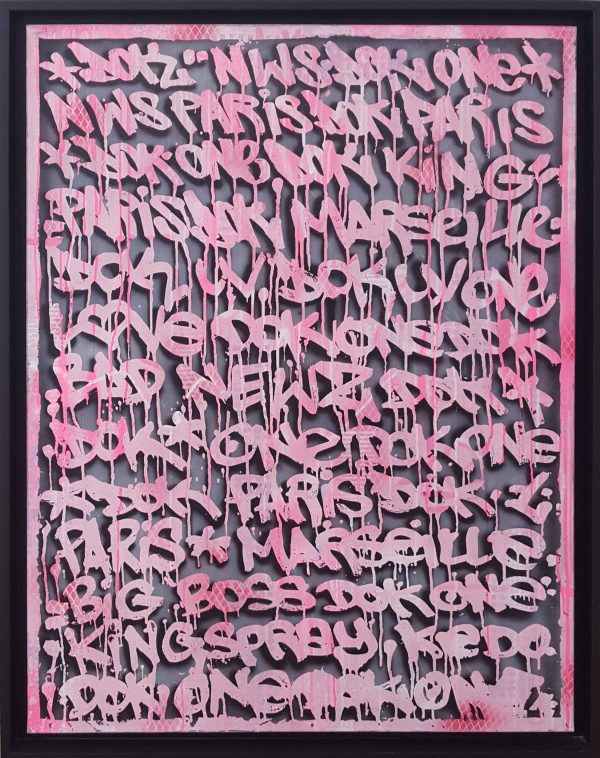 *DOK* NWS DOK ONE*
NWS PARIS DOK PARIS
* DOK ONE DOK KING
PARIS DOK MARSEILLE
DOK UV DOK UV ONE
LOVE DOK ONE DOK
BAD NEWZ DOK *
DOK * ONE DOK ONE
* DOK PARIS DOK
PARIS * MARSEILLE
BIG BOSS DOK ONE
KING SPRAY KEDO
DOK ONE